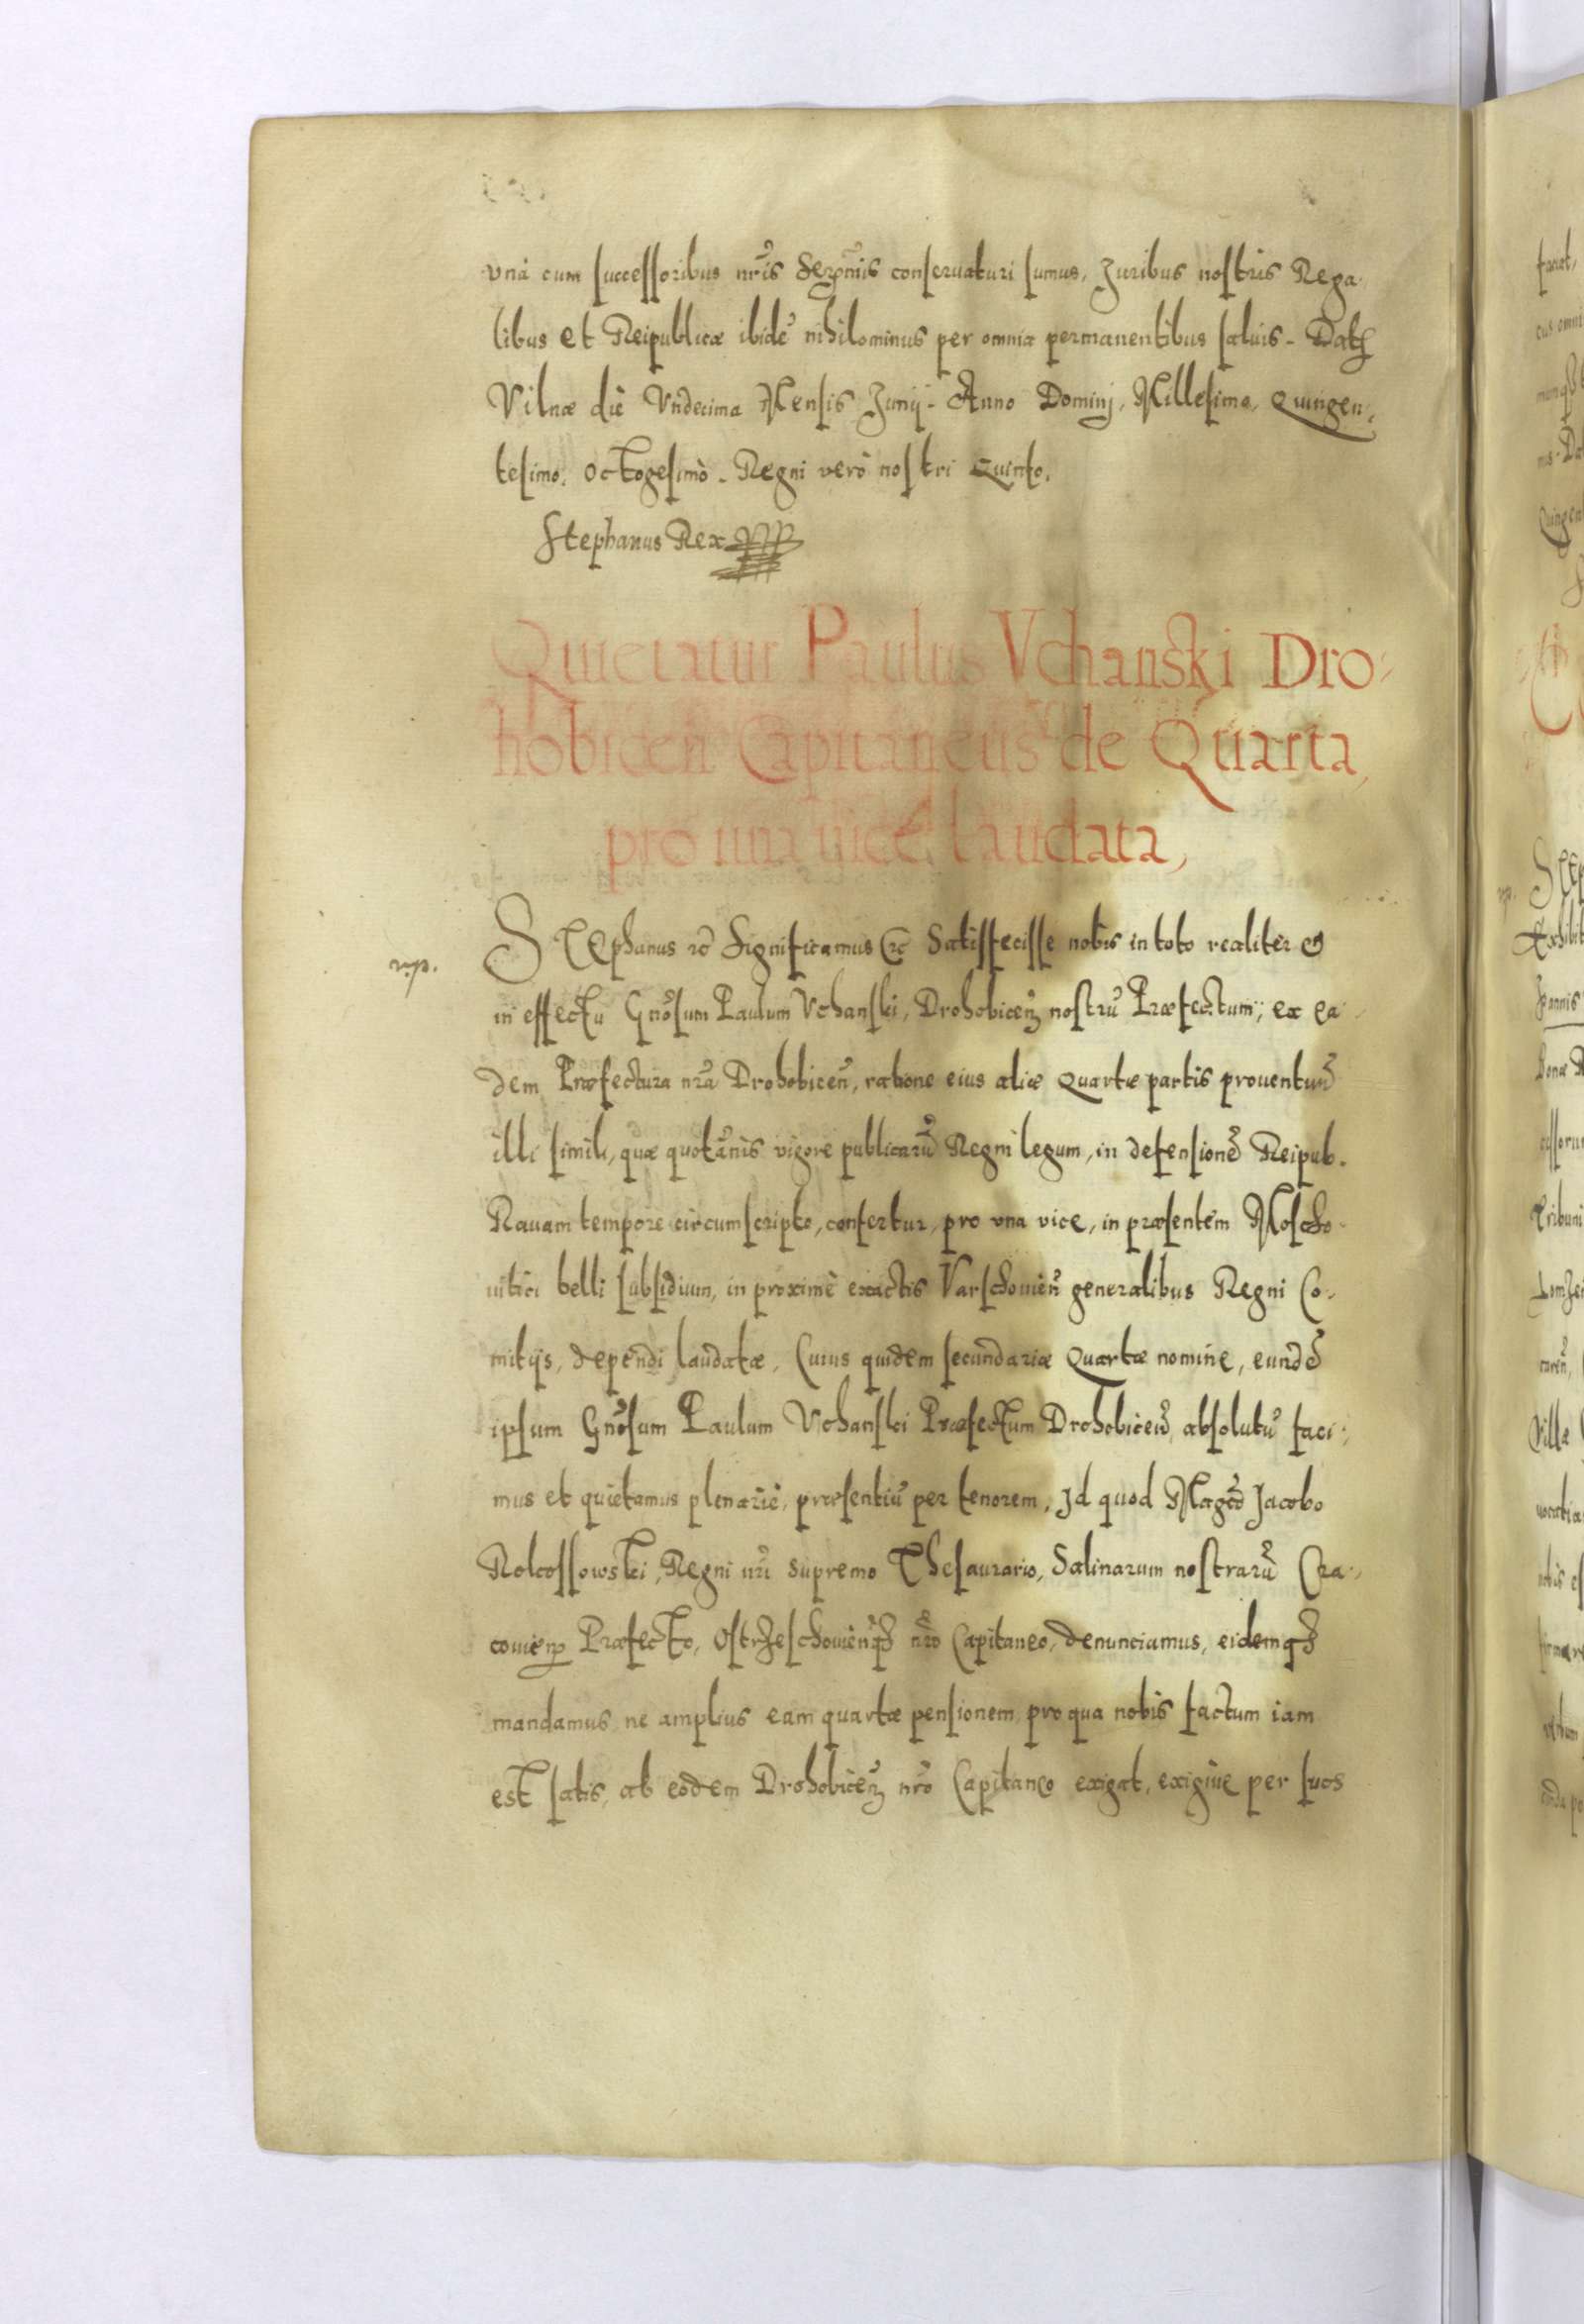 vna cum successoribus nr̃is Serẽmis conseruaturi sumus, Juribus nostris Rega
libus et Reipublicæ ibidẽ nihilominus per omnia permanentibus saluis. Dat
Vilnæ die Vndecima Mensis Junij. Anno Dominj, Millesimo, Quingen,
tesimo, Octogesimò. Regni verò nostri Quinto,
Stephanus Rex
Quietatur Paulus Vchanski Dro-
hobicen̄ Capitaneus de Quarta,
pro una uice laudata,
rp. Stephanus rc̃ Significamus rc̃ Satisfecisse nobis in toto realiter et
in effectu Gnõsum Paulum Vchanski, Drohobiceñ nostrũ Præfectum, ex ea-
dem Præfectura nrã Drohobiceñ, ratione eius aliæ Quartæ partis prouentuũ
illi simili, quæ quotãnis vigore publicarũ Regni legum, in defensionẽ Reipub.
Rauam tempore circumscripto, confertur, pro vna vice, in præsentem Moscho-
uitici belli subsidium, in proximè exactis Varschouieñ generalibus Regni Co-
mitijs, dependi laudatæ, Cuius quidem secundariæ Quartæ nomine, eundẽ
ipsum Gnõsum Paulum Vchanski Præfectum Drohobiceñ absolutũ faci-
mus et quietamus plenariè, præsentiũ per tenorem, Id quod Magcõ Jacobo
Rokossowski, Regni nr̃i Supremo Thesaurario, Salinarum nostrarũ Cra-
couieñ Præfecto, Ostrzeschouieñq₃ nrõ Capitaneo, denunciamus, eidemq₃
mandamus ne amplius eam quartæ pensionem pro qua nobis factum iam
est satis, ab eodem Drohobiceñ nrõ Capitaneo exigat, exigiue per suos